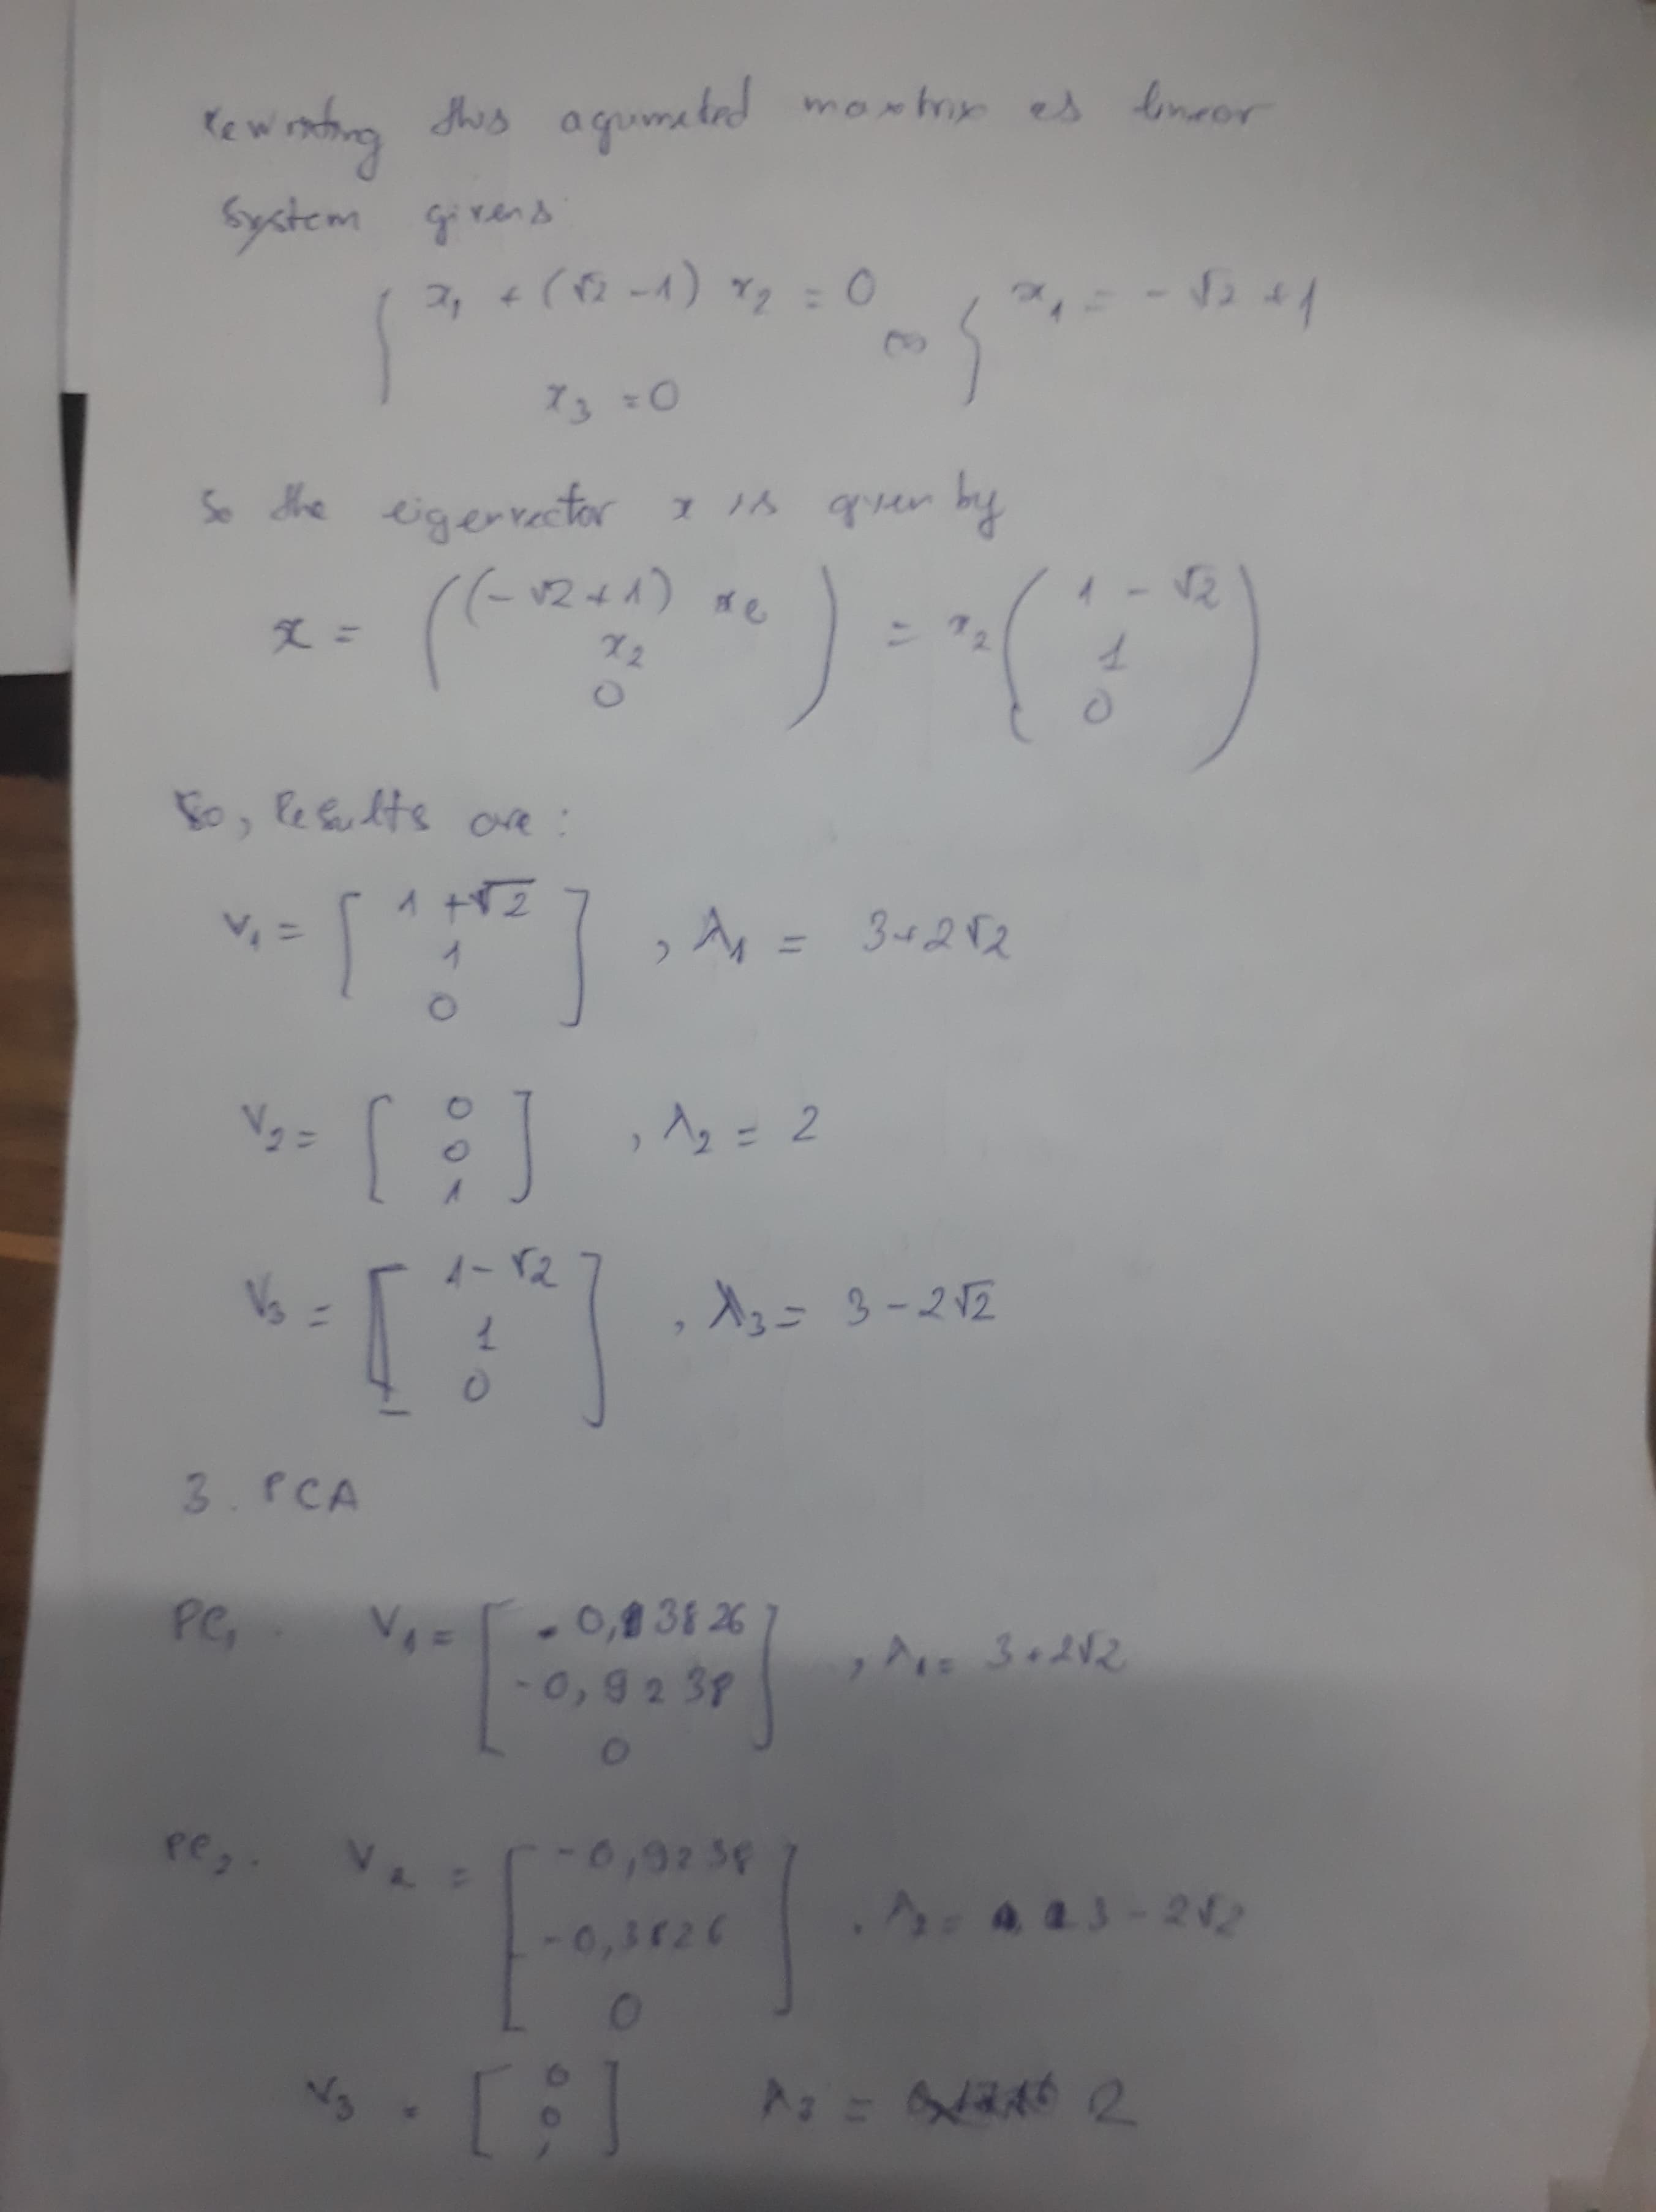 rewriting this agumeted maxtrix as linear
system givens
{ x₁ + (√2 - 1) x₂ = 0
x₃ = 0
⇔ { x₁ = - √2 + 1
So the eigenvector x is given by
x = ( (-√2 + 1) x₂
x₂
0 ) = x₂ ( 1 - √2
1
0 )
So, Results are:
V₁ = [ 1 + √2
1
0 ] , λ₁ = 3 + 2√2
V₂ = [ 0
0
1 ] , λ₂ = 2
V₃ = [ 1 - √2
1
0 ] , λ₃ = 3 - 2√2
3. PCA
PC₁. V₁ = [ -0,3826
-0,9238
0 ] , λ₁ = 3 + 2√2
PC₂. V₂ = [ -0,9238
-0,3826
0 ] . λ₂ = 3 - 2√2
V₃ = [ 0
0
1 ] λ₃ = 2